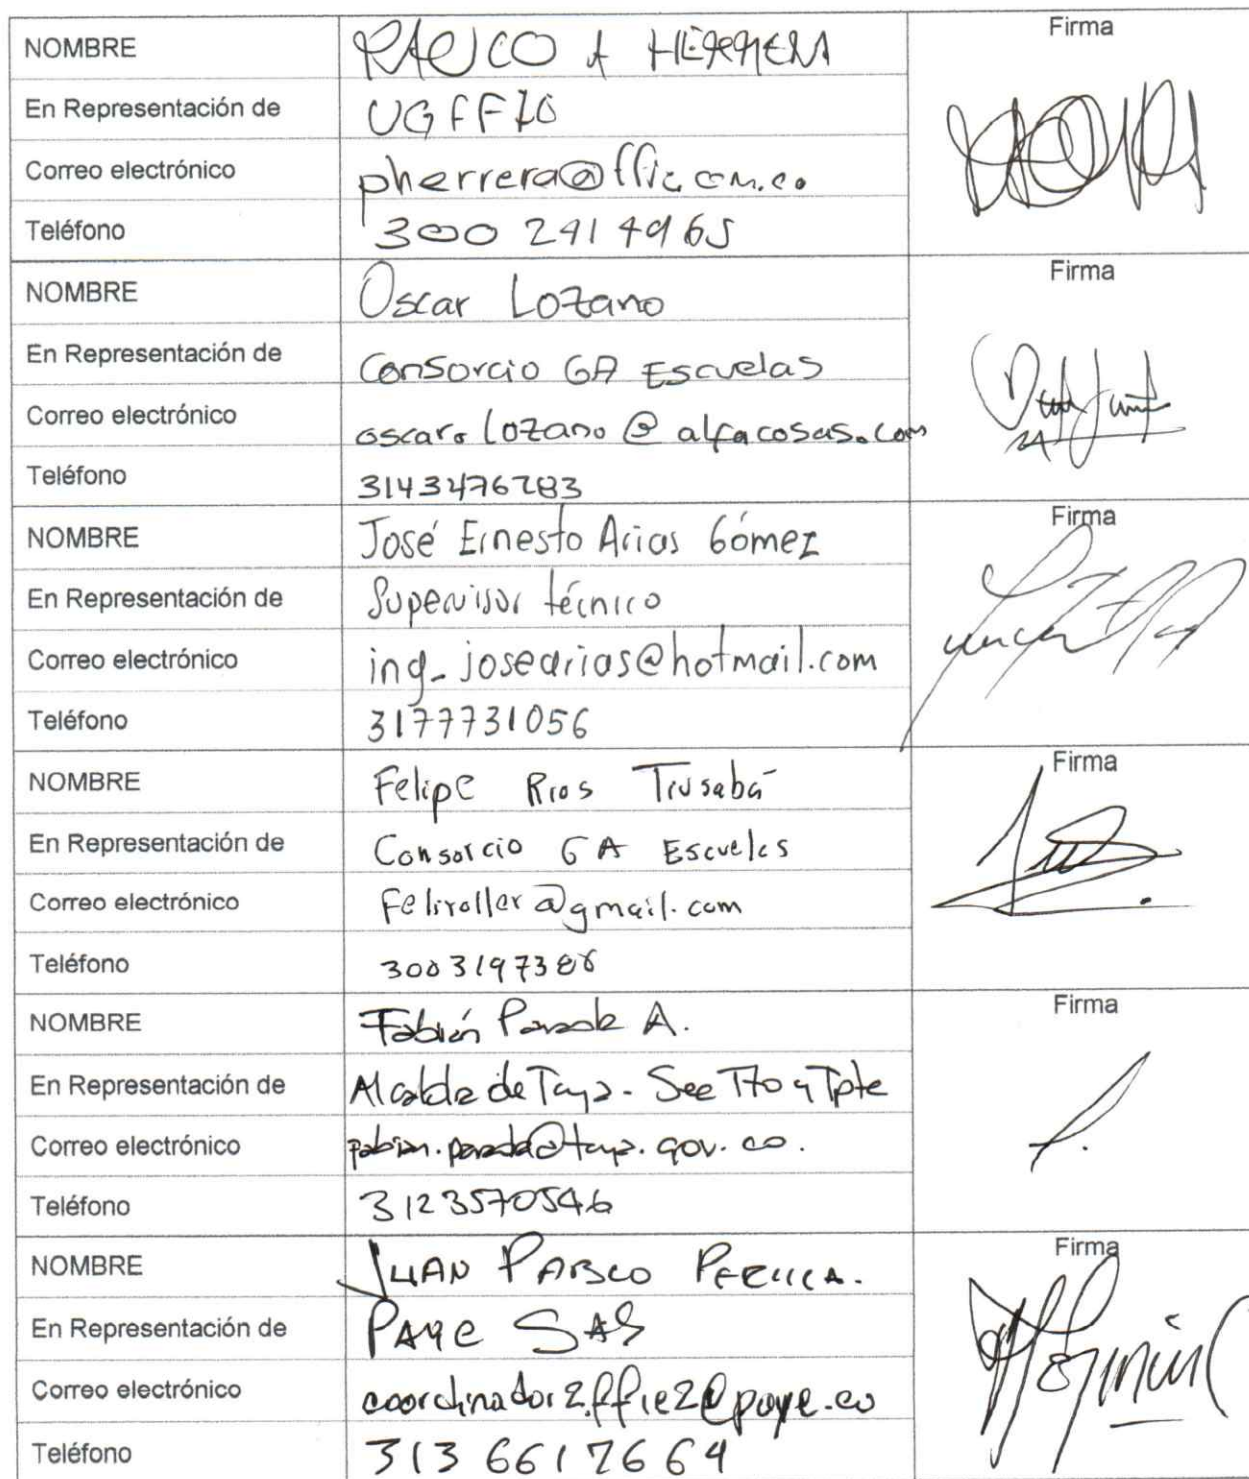 NOMBRE A HERRERA Firma
En Representación de UGFFIE
Correo electrónico pherrera@ffie.com.co
Teléfono 300 2414965
NOMBRE Oscar Lozano Firma
En Representación de Consorcio GA Escuelas
Correo electrónico oscar.lozano@alfacosas.com
Teléfono 3143476283
NOMBRE José Ernesto Arias Gómez Firma
En Representación de Supervisor técnico
Correo electrónico ing_josearias@hotmail.com
Teléfono 3177731056
NOMBRE Felipe Rios Trusabá Firma
En Representación de Consorcio GA Escuelas
Correo electrónico feliroller@gmail.com
Teléfono 3003197386
NOMBRE Fabián Parada A. Firma
En Representación de Alcaldia de - Sec Tto y Tpte
Correo electrónico
Teléfono 3123570546
NOMBRE JUAN PABLO Firma
En Representación de PAYC SAS
Correo electrónico
Teléfono 313 6617664